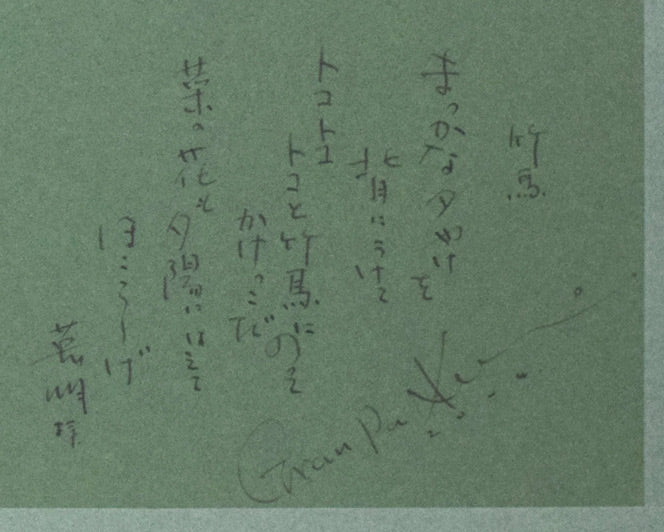 竹馬
まっかな夕やけを
背にうけて
トコトコ
トコと竹馬にのって
かけっこだ
菜の花も夕陽にはえて
ほこらしげ
Gran Pa